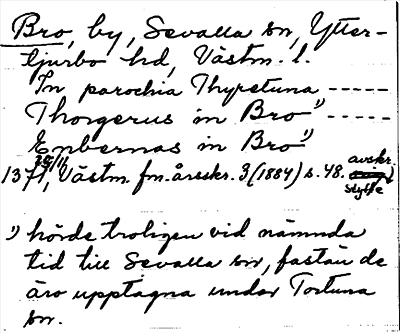 Bro, by, Sevalla sn, Ytter-
tjurbo hd, Västm. l.
In parochia Thyrstuna -----
Thorgerus in Bro 1) -----
Enbernas in Bro 1)
1371 29/11, Västm. fm. årsskr. 3 (1884) s. 48. avskr.
Styffe
1) hörde troligen vid nämnda
tid till Sevalla sn, fastän de
äro upptagna under Tortuna
sn.